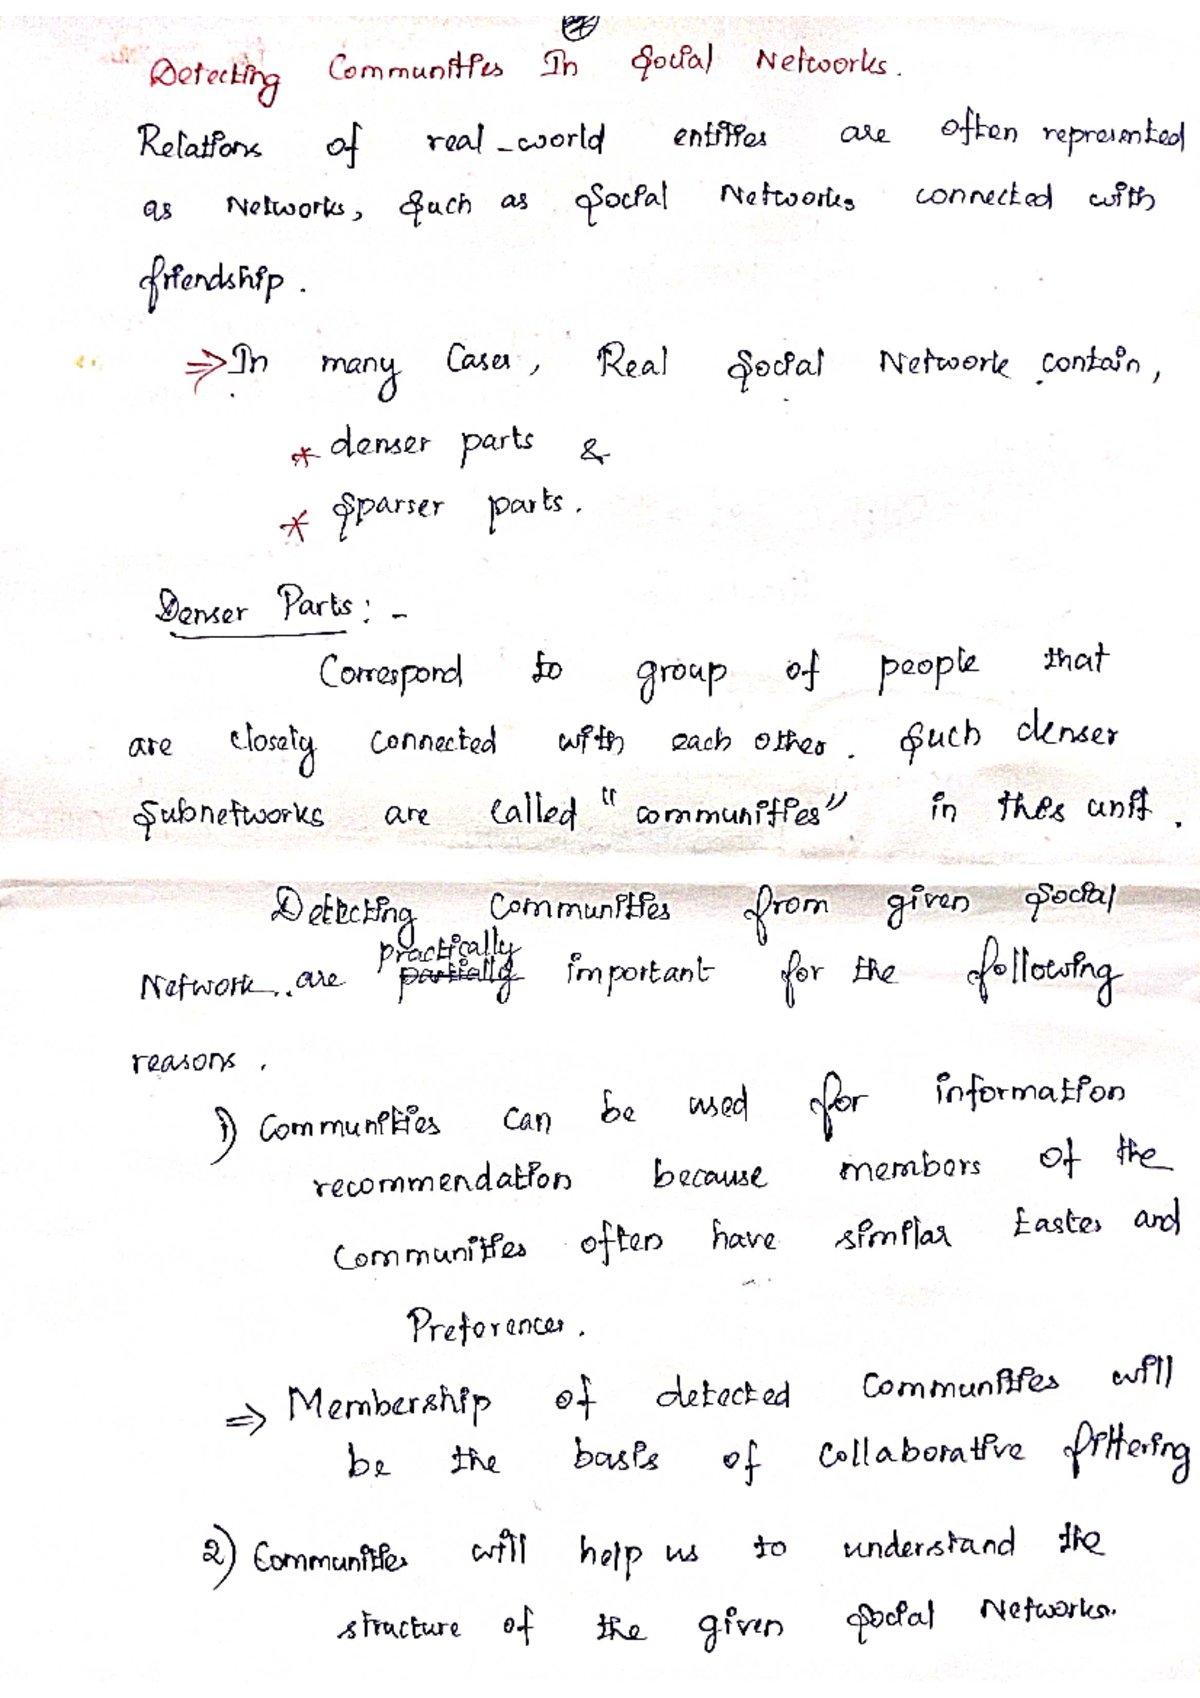 Detecting Communities In Social Networks.
Relations of real-world entities are often represented
as Networks, Such as Social Networks connected with
friendship.
⇒ In many Cases, Real Social Network contain,
* denser parts &
* Sparser parts.
Denser Parts: -
Correspond to group of people that
are closely connected with each other. Such denser
Subnetworks are called "communities" in this unit.
Detecting Communities from given Social
practically
Network are partially important for the following
reasons.
1) Communities can be used for information
recommendation because members of the
Communities often have similar tastes and
Preferences.
⇒ Membership of detected Communities will
be the basis of Collaborative filtering
2) Communities will help us to understand the
structure of the given Social Networks.